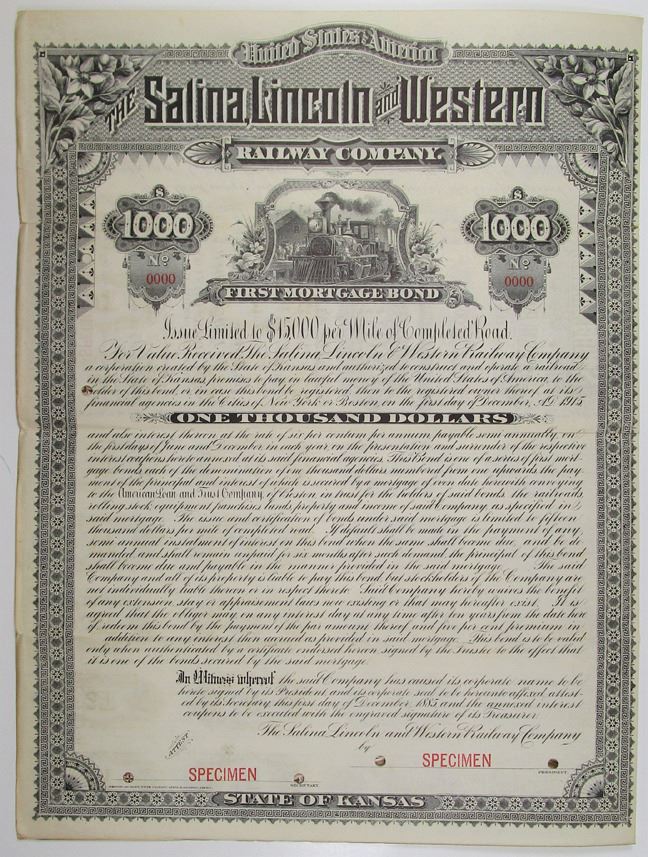 United States of America
THE Salina, Lincoln and Western
RAILWAY COMPANY.
$ $
1000 1000
No No
0000 0000
FIRST MORTGAGE BOND
Issue Limited to $15,000 per Mile of Completed Road.
For Value Received The Salina Lincoln & Western Railway Company
a corporation created by the State of Kansas and authorized to construct and operate a railroad
in the State of Kansas promises to pay in lawful money of the United States of America to the
holder of this bond, or in case this bond be registered, then to the registered owner thereof, at its
financial agencies in the Cities of New York or Boston, on the first day of December, AD 1915
ONE THOUSAND DOLLARS
and also interest thereon at the rate of six per centum per annum payable semi annually on
the first days of June and December in each year, on the presentation and surrender of the respective
interest coupons hereto annexed at its said financial agencies. This Bond is one of a series of first mort-
gage bonds each of the denomination of one thousand dollars numbered from one upwards the pay
ment of the principal and interest of which is secured by a mortgage of even date herewith conveying
to the American Loan and Trust Company, of Boston in trust for the holders of said bonds the railroads
rolling stock equipment franchises lands property and income of said Company as specified in
said mortgage. The issue and certification of bonds under said mortgage is limited to fifteen
thousand dollars per mile of completed road. If default shall be made in the payment of any
semi annual instalment of interest on this bond when the same shall become due, and be de
manded and shall remain unpaid for six months after such demand the principal of this bond
shall become due and payable in the manner provided in the said mortgage. The said
Company and all of its property is liable to pay this bond but stockholders of the Company are
not individually liable thereon or in respect thereto. Said Company hereby waives the benefit
of any extension stay or appraisement laws now existing or that may hereafter exist. It is
agreed that the obligor may on any interest day at any time after ten years from the date hereof
of redeem this bond by the payment of the par amount thereof and five per cent premium in
addition to any interest then accrued as provided in said mortgage. This bond is to be valid
only when authenticated by a certificate endorsed hereon signed by the Trustee to the effect that
it is one of the bonds secured by the said mortgage.
In Witness whereof the said Company has caused its corporate name to be
hereto signed by its President and its corporate seal to be hereunto affixed attest-
ed by its Secretary this first day of December 1885 and the annexed interest
coupons to be executed with the engraved signature of its Treasurer.
The Salina Lincoln and Western Railway Company
ATTEST
by
SPECIMEN SPECIMEN
SECRETARY. PRESIDENT.
STATE OF KANSAS